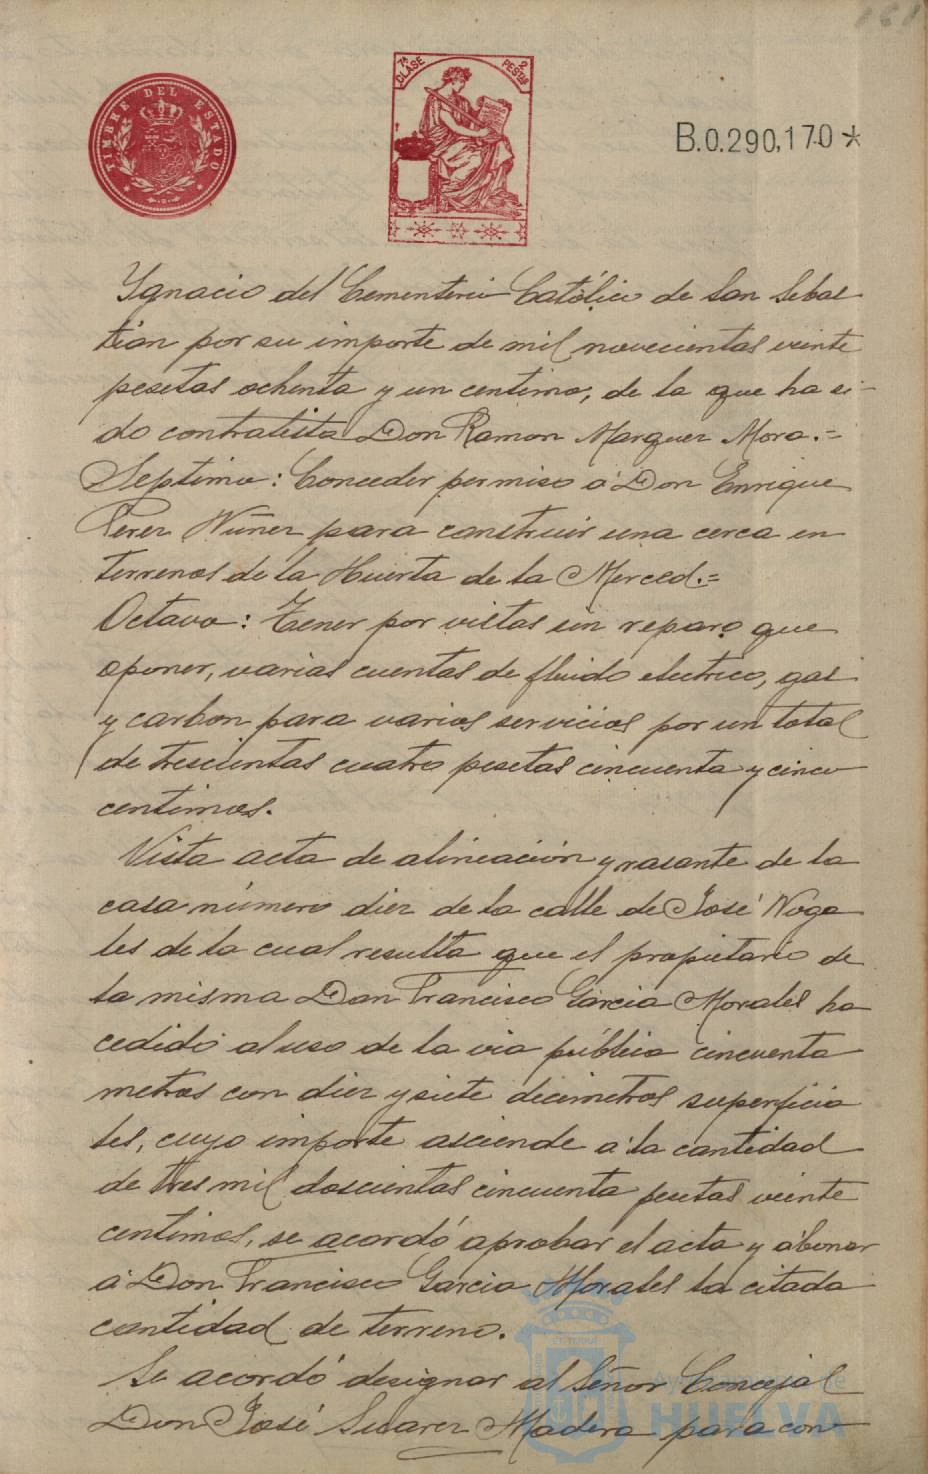 161
TIMBRE DEL ESTADO
7ª CLASE 2 PESTAS
B.0.290,170 *
Ygnacio del Cementerio Católico de San Sebas-
tian por su importe de mil novecientas veinte
pesetas ochenta y un centimo, de la que ha si-
do contratista Don Ramon Marquez Mora.=
Septimo: Conceder permiso á Don Enrique
Perez Nuñez para construir una cerca en
terrenos de la Huerta de la Merced.=
Octavo: Tener por vistas sin reparo que
oponer, varias cuentas de fluido electrico, gas
y carbon para varios servicios por un total
de trescientas cuatro pesetas cincuenta y cinco
centimos.
Vista acta de alineación y rasante de la
casa número diez de la calle de José Noga
les de la cual resulta que el propietario de
la misma Don Francisco Garcia Morales ha
cedido al uso de la via pública cincuenta
metros con diez y siete decimetros superficia
les, cuyo importe asciende á la cantidad
de tres mil doscientas cincuenta pesetas veinte
centimos, se acordó aprobar el acta y abonar
á Don Francisco Garcia Morales la citada
cantidad de terreno.
Se acordó designar al Señor Concejal
Don José Suarez Madera para con-
Ayuntamiento de
HUELVA